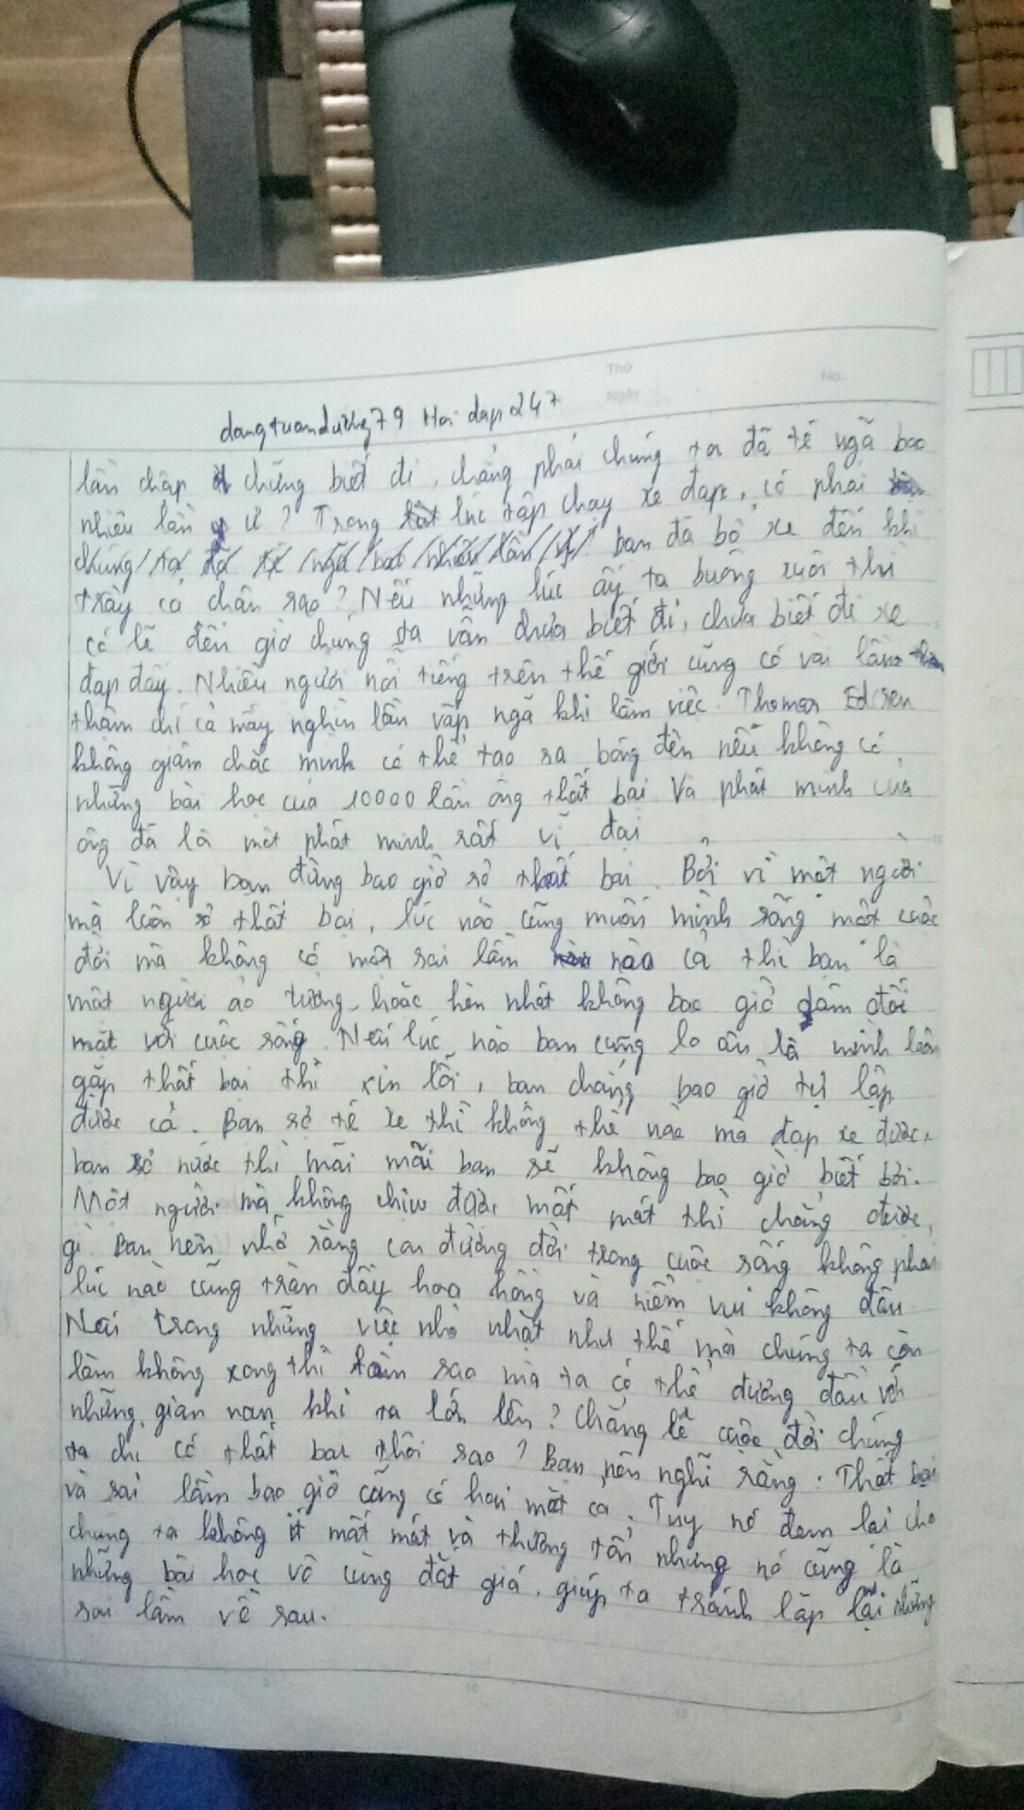 Thứ
No.
Ngày
dangtuanduong79 Hoi dap 247
lần chập chững biết đi, chẳng phải chúng ta đã té ngã bao
nhiêu lần ư? Trong lúc tập chạy xe đạp, có phải
chúng ta đã té ngã bao nhiêu lần bạn đã bỏ xe đến khi
trầy cả chân sao? Nếu những lúc ấy ta buông xuôi thì
có lẽ đến giờ chúng ta vẫn chưa biết đi, chưa biết đi xe
đạp đấy. Nhiều người nổi tiếng trên thế giới cũng có vài lần
thậm chí cả mấy nghìn lần vấp ngã khi làm việc. Thomas Edison
không giám chắc mình có thể tạo ra bóng đèn nếu không có
những bài học của 10000 lần ông thất bại. Và phát minh của
ông đã là một phát minh rất vĩ đại
Vì vậy bạn đừng bao giờ sợ thất bại. Bởi vì một người
mà luôn sợ thất bại, lúc nào cũng muốn mình sống một cuộc
đời mà không có một sai lầm nào cả thì bạn là
một người ảo tưởng, hoặc hèn nhát không bao giờ dám đối
mặt với cuộc sống. Nếu lúc nào bạn cũng lo âu là mình luôn
gặp thất bại thì xin lỗi, bạn chẳng bao giờ tự lập
được cả. Bạn sợ té xe thì không thể nào mà đạp xe được,
bạn sợ nước thì mãi mãi bạn sẽ không bao giờ biết bơi.
Một người mà không chịu được mất mát thì chẳng được
gì. Bạn nên nhớ rằng con đường đời trong cuộc sống không phải
lúc nào cũng tràn đầy hoa hồng và niềm vui không đâu
Nếu trong những việc nhỏ nhặt như thế mà chúng ta còn
làm không xong thì làm sao mà ta có thể đương đầu với
những gian nan khi ta lớn lên? Chẳng lẽ cuộc đời chúng
ta chỉ có thất bại thôi sao? Bạn nên nghĩ rằng: Thất bại
và sai lầm bao giờ cũng có hai mặt cả. Tuy nó đem lại cho
chúng ta không ít mất mát và thương tổn nhưng nó cũng là
những bài học vô cùng đắt giá, giúp ta tránh lặp lại những
sai lầm về sau.